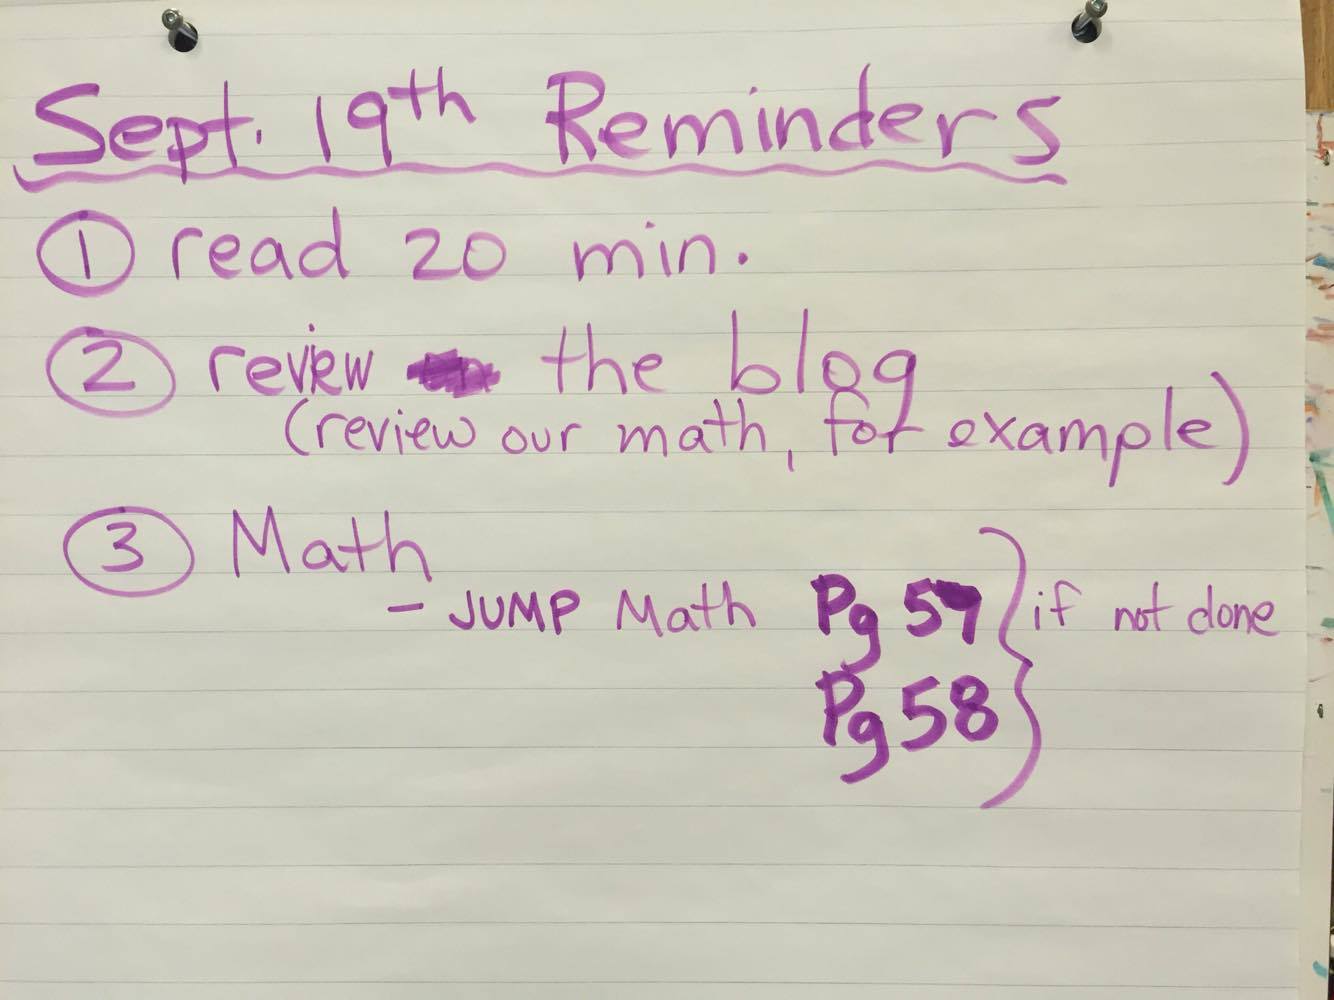 Sept. 19th Reminders
① read 20 min.
② review the blog
(review our math, for example)
③ Math
- JUMP Math Pg 57 } if not done
Pg 58